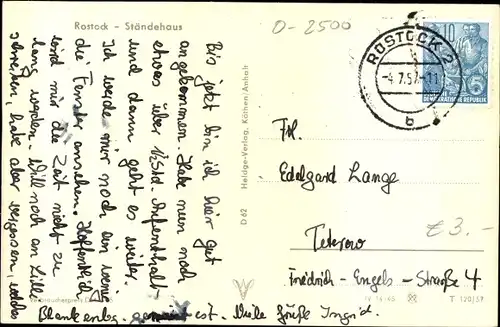 Rostock – Ständehaus
O-2500
ROSTOCK 2
-4.7.57.-11
b
10
5
DEUTSCHE DEMOKRATISCHE REPUBLIK
Bis jetzt bin ich hier gut
angekommen. Habe nun noch
etwas über ½ Std. Aufenthalt
und dann geht es weiter.
Ich werde mir noch ein wenig
die Fenster ansehen. Hoffentlich
wird mir die Zeit nicht zu
lang werden. Will noch an Lilli
schreiben, habe aber vergessen, welche
Blankenbg. gemeint ist. Viele Grüße Ingrid.
D 62 Heldge-Verlag, Köthen/Anhalt
Frl.
Edelgard Lange
Teterow
Friedrich-Engels-Straße 4
£ 3.-
Verbraucherpreis
T 120/57